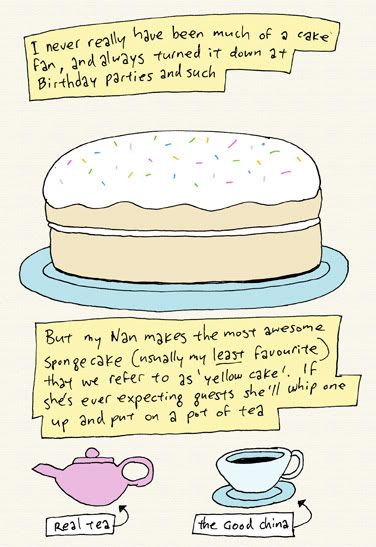 I never really have been much of a cake
fan, and always turned it down at
Birthday parties and such
But my Nan makes the most awesome
spongecake (usually my least favourite)
that we refer to as 'yellow cake'. If
she's ever expecting guests she'll whip one
up and put on a pot of tea
Real tea
the Good china